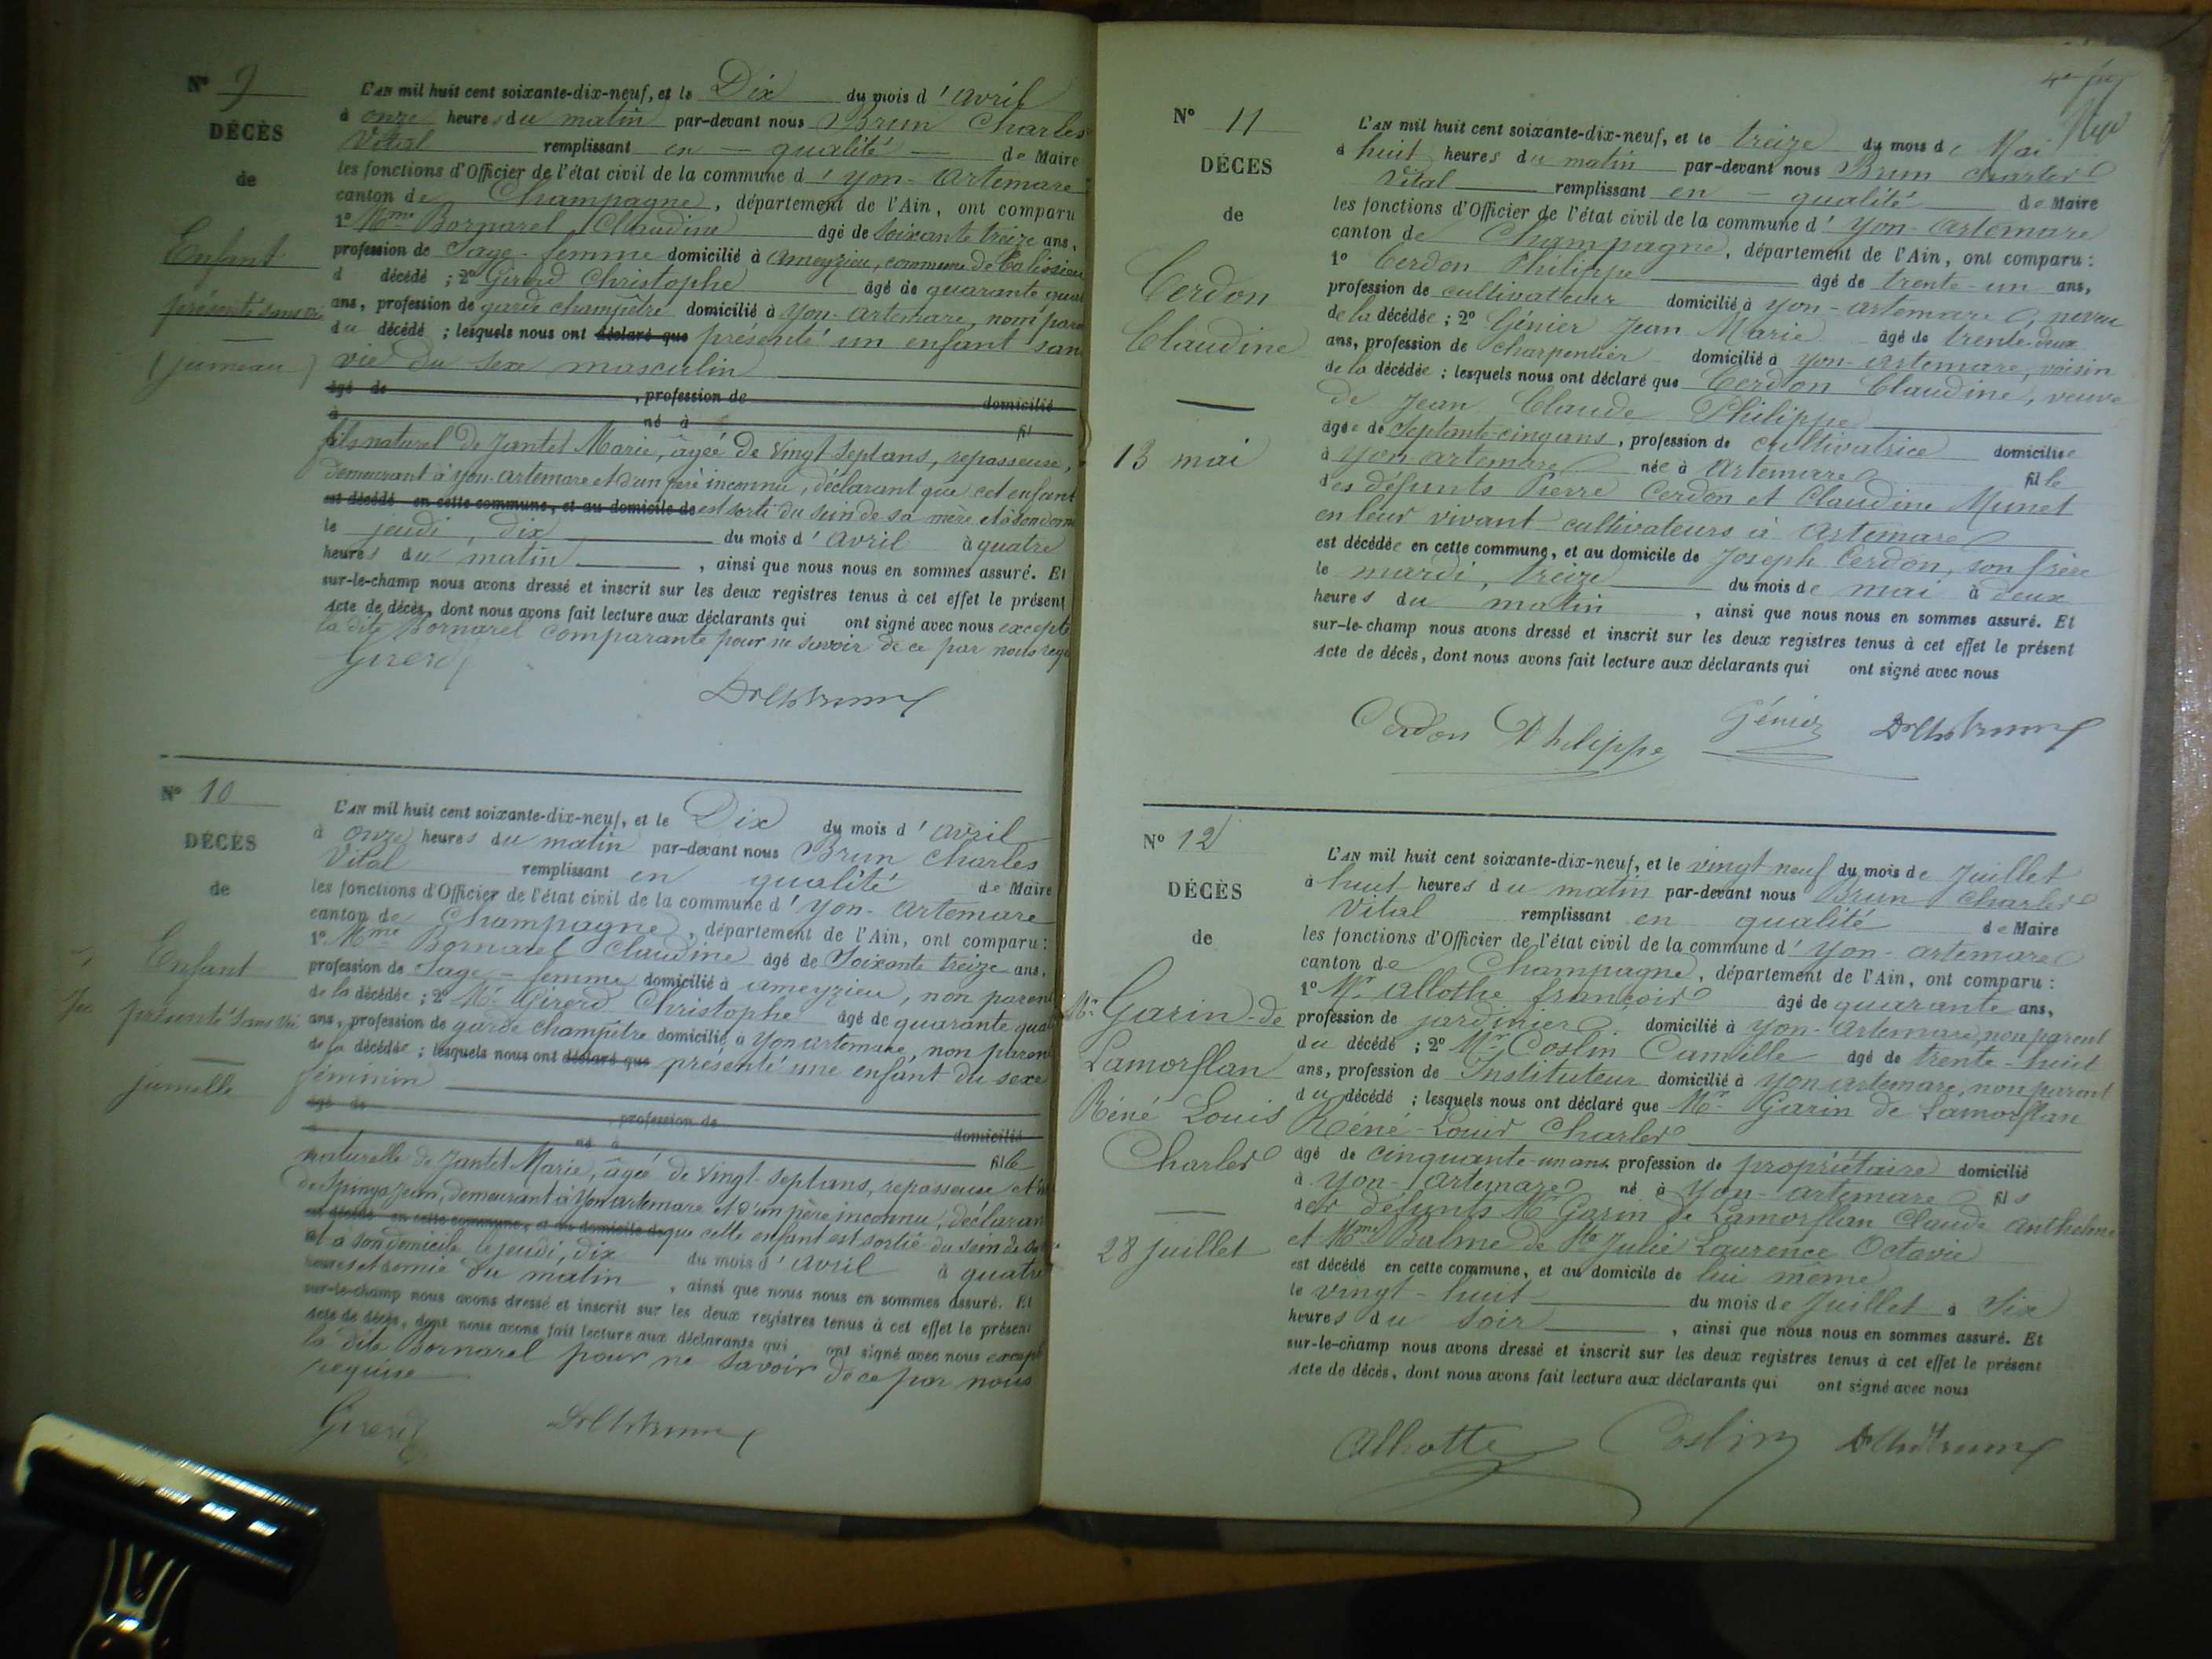 N° 9
DÉCÈS
de
Enfant
présenté sans vie
(jumeau)
L'AN mil huit cent soixante-dix-neuf, et le Dix du mois d'avril
à onze heures du matin par-devant nous Brun Charles
Vital remplissant en qualité de Maire
les fonctions d'Officier de l'état civil de la commune d'Yon-Artemare
canton de Champagne, département de l'Ain, ont comparu
1° Mme Bornarel Claudine âgé de soixante treize ans,
profession de Sage-femme domicilié à Ameyzieu, commune de Talissieu
d décédé ; 2° Girerd Christophe âgé de quarante
ans, profession de garde champêtre domicilié à Yon-Artemare, non
du décédé ; lesquels nous ont déclaré que présenté un enfant sans
vie du sexe masculin
âgé de , profession de domicilié
à né à fil
fils naturel de Jantet Marie, âgée de vingt-sept ans, repasseuse,
demeurant à Yon-Artemare et d'un père inconnu, déclarant que cet enfant
est décédé en cette commune, et au domicile de est sorti du sein de sa mère et à son
le jeudi, dix du mois d'avril à quatre
heures du matin, ainsi que nous nous en sommes assuré. Et
sur-le-champ nous avons dressé et inscrit sur les deux registres tenus à cet effet le présent
Acte de décès, dont nous avons fait lecture aux déclarants qui ont signé avec nous excepté
la dite Bornarel comparante pour ne savoir de ce par nous
Girerd
Dr Ch Brun
N° 10
DÉCÈS
de
Enfant
présenté sans vie
jumelle
L'AN mil huit cent soixante-dix-neuf, et le Dix du mois d'avril
à onze heures du matin par-devant nous Brun Charles
Vital remplissant en qualité de Maire
les fonctions d'Officier de l'état civil de la commune d'Yon-Artemare
canton de Champagne, département de l'Ain, ont comparu :
1° Mme Bornarel Claudine âgé de soixante treize ans,
profession de Sage-femme domicilié à Ameyzieu, non parent
de la décédée ; 2° Mr Girerd Christophe âgé de quarante
ans, profession de garde champêtre domicilié à Yon artemare, non parent
de la décédée ; lesquels nous ont déclaré que présenté une enfant du sexe
féminin
âgé de , profession de domicilié
à né à fille
naturelle de Jantet Marie, âgée de vingt-sept ans, repasseuse
demeurant à Yon artemare et d'un père inconnu, déclarant
est décédé en cette commune, et au domicile de que cette enfant est sortie du sein de
et à son domicile le jeudi, dix du mois d'avril à quatre
heures et demie du matin, ainsi que nous nous en sommes assuré. Et
sur-le-champ nous avons dressé et inscrit sur les deux registres tenus à cet effet le présent
Acte de décès, dont nous avons fait lecture aux déclarants qui ont signé avec nous excepté
la dite Bornarel pour ne savoir de ce par nous
requise
Girerd
Dr Ch Brun
N° 11
DÉCÈS
de
Cerdon
Claudine
13 mai
L'AN mil huit cent soixante-dix-neuf, et le treize du mois de Mai
à huit heures du matin par-devant nous Brun Charles
Vital remplissant en qualité de Maire
les fonctions d'Officier de l'état civil de la commune d'Yon-Artemare
canton de Champagne, département de l'Ain, ont comparu :
1° Cerdon Philippe âgé de trente-un ans,
profession de cultivateur domicilié à Yon-Artemare, neveu
de la décédée ; 2° Génier Jean Marie âgé de trente-deux
ans, profession de charpentier domicilié à Yon-Artemare, voisin
de la décédée ; lesquels nous ont déclaré que Cerdon Claudine, veuve
de Jean Claude Philippe
âgée de septante-cinq ans, profession de cultivatrice domiciliée
à Yon artemare née à Artemare fille
des défunts Pierre Cerdon et Claudine Munet
en leur vivant cultivateurs à Artemare
est décédée en cette commune, et au domicile de Joseph Cerdon, son frère
le mardi, treize du mois de mai à deux
heures du matin, ainsi que nous nous en sommes assuré. Et
sur-le-champ nous avons dressé et inscrit sur les deux registres tenus à cet effet le présent
Acte de décès, dont nous avons fait lecture aux déclarants qui ont signé avec nous
Cerdon Philippe Génier Dr Ch Brun
N° 12
DÉCÈS
de
Mr Garin-de
Lamorflan
Réné Louis
Charles
28 Juillet
L'AN mil huit cent soixante-dix-neuf, et le vingt-neuf du mois de Juillet
à huit heures du matin par-devant nous Brun Charles
Vital remplissant en qualité de Maire
les fonctions d'Officier de l'état civil de la commune d'Yon-artemare
canton de Champagne, département de l'Ain, ont comparu :
1° Mr Allothe françois âgé de quarante ans,
profession de jardinier domicilié à Yon-Artemare, non parent
du décédé ; 2° Mr Coslin Camille âgé de trente-huit
ans, profession de Instituteur domicilié à Yon artemare, non parent
du décédé ; lesquels nous ont déclaré que Mr Garin de Lamorflan
Réné-Louis Charles
âgé de cinquante-un ans profession de propriétaire domicilié
à Yon-Artemare né à Yon-Artemare fils
des défunts Mr Garin de Lamorflan Claude Anthelme
et Mme Balme de Ste Julie Laurence Octavie
est décédé en cette commune, et au domicile de lui même
le vingt-huit du mois de Juillet à Six
heures du Soir, ainsi que nous nous en sommes assuré. Et
sur-le-champ nous avons dressé et inscrit sur les deux registres tenus à cet effet le présent
Acte de décès, dont nous avons fait lecture aux déclarants qui ont signé avec nous
Alhotte Coslin Dr Ch Brun